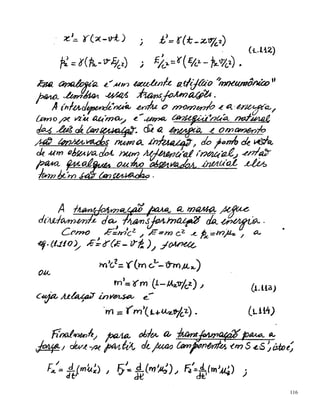 x' = γ(x-vt) ; t' = γ(t-xv/c²)
(1.112)
p'ₓ = γ(pₓ-vE/c²) ; E'/c² = γ(E/c² - pₓv/c²).
Essa analogia é um excelente artifício "mneumônico"
para lembrar essas transformações.
A interdependência entre o momento e a energia,
como se viu acima, é uma consequência natural
das leis de conservação. Se a energia e o momento
são conservados numa interação, do ponto de vista
de um observador num referencial inercial, então
para qualquer outro observador inercial eles
também são conservados.
A transformação para a massa, segue
diretamente da transformação da energia.
Como E'=m'c², E=mc² e pₓ=mμₓ, a
eq. (1.110), E'=γ(E-vpₓ), fornece
m'c² = γ(mc²-vmμₓ)
ou
m' = γm (1-μₓv/c²) , (1.113)
cuja relação inversa é
m = γm'(1+μ'ₓv/c²) . (1.114)
Finalmente, para obter a transformação para a
força, deve-se partir de suas componentes em S e S', isto é,
F'ₓ = d/dt' (m'μ'ₓ) , F'ᵧ = d/dt' (m'μ'ᵧ) , F'𝓏 = d/dt' (m'μ'𝓏) ;
116